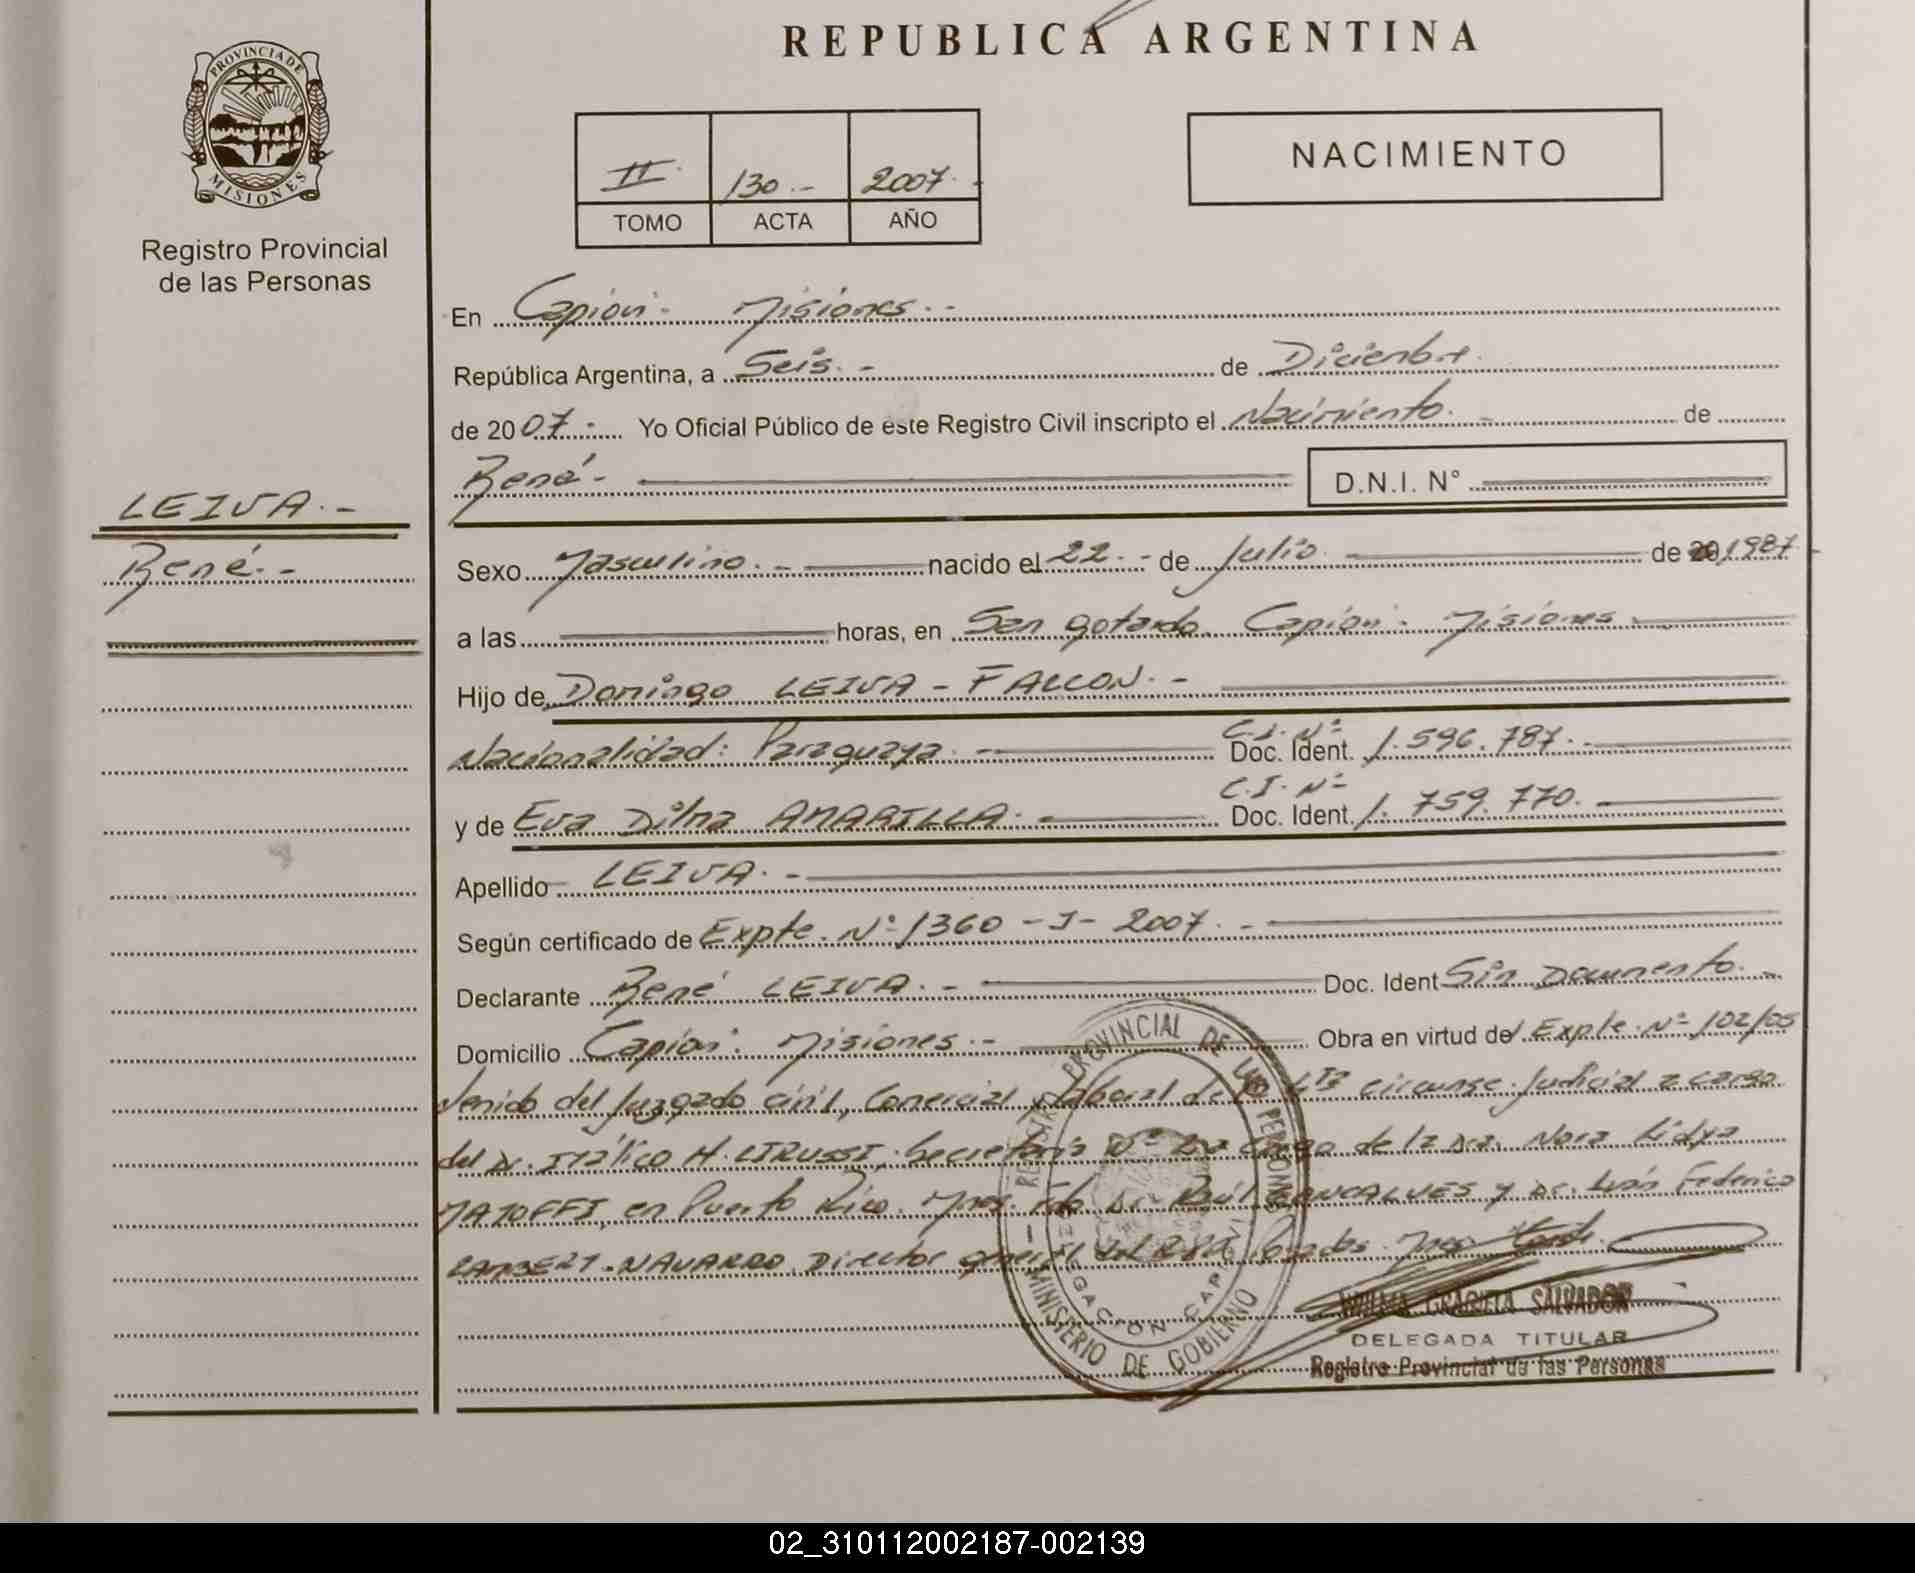 REPUBLICA ARGENTINA
PROVINCIA DE
MISIONES
Registro Provincial
de las Personas
II.
130.-
2007.-
TOMO
ACTA
AÑO
NACIMIENTO
En Capioví. Misiones.-
República Argentina, a Seis.- de Diciembre.
de 2007.- Yo Oficial Público de este Registro Civil inscripto el Nacimiento.- de
René.- D.N.I. N°
LEIVA.-
René.-
Sexo Masculino.- nacido el 22.- de Julio de 1987
a las horas, en San gotardo. Capioví. Misiones
Hijo de Domingo LEIVA - FALCON.-
Nacionalidad: Paraguaya.- C.I. N° Doc. Ident. 1.596.787.-
y de Eva Dilma AMARILLA.- C.I. N° Doc. Ident. 1.759.770.
Apellido LEIVA.-
Según certificado de Expte. N° 1360-J-2007.-
Declarante René LEIVA.- Doc. Ident Sin Documento.-
Domicilio Capioví. Misiones.- Obra en virtud del Expte. N° 102/05
venido del Juzgado civil, Comercial y laboral de la 4ta circunsc. Judicial a cargo
del Dr. Itálico H. LIRUSSI, Secretaria N° a cargo de la Dra. Nora Lidya
MAZOFFI, en Puerto Rico. Mnes. Fdo Dr. Raúl GONCALVES y Dr. Iván Federico
LAMBERT-NAVARRO. Director general del R.P.P. Posadas. Mnes.
REGISTRO PROVINCIAL DE LAS PERSONAS
MINISTERIO DE GOBIERNO
DELEGACION CAPIOVI
WILMA GRACIELA SALVADOR
DELEGADA TITULAR
Registro Provincial de las Personas
02_310112002187-002139